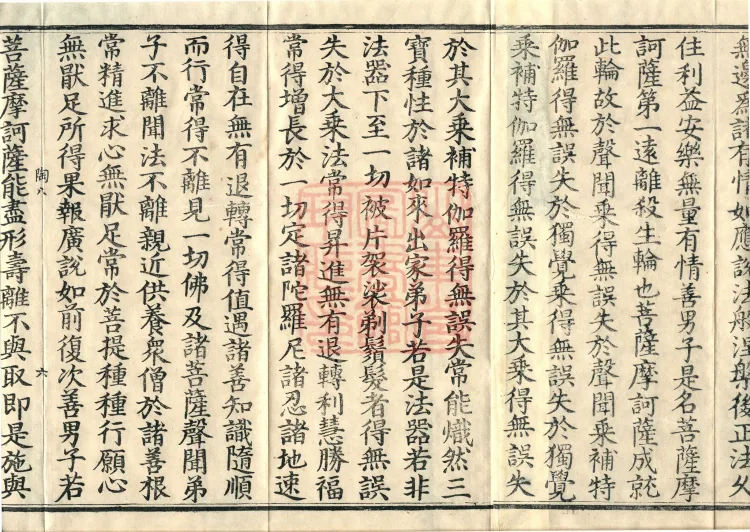 無邊爲諸有情如應說法般涅槃後正法久
住利益安樂無量有情善男子是名菩薩摩
訶薩第一遠離殺生輪也菩薩摩訶薩成就
此輪故於聲聞乘得無誤失於聲聞乘補特
伽羅得無誤失於獨覺乘得無誤失於獨覺
乘補特伽羅得無誤失於其大乘得無誤失
於其大乘補特伽羅得無誤失常能熾然三
寶種性於諸如來出家弟子若是法器若非
法器下至一切被片袈裟剃鬚髮者得無誤
失於大乘法常得昇進無有退轉利慧勝福
常得增長於一切定諸陀羅尼諸忍諸地速
得自在無有退轉常得值遇諸善知識隨順
而行常得不離見一切佛及諸菩薩聲聞弟
子不離聞法不離親近供養衆僧於諸善根
常精進求心無厭足常於菩提種種行願心
無厭足所得果報廣說如前復次善男子若
陶八 六
菩薩摩訶薩能盡形壽離不與取即是施與